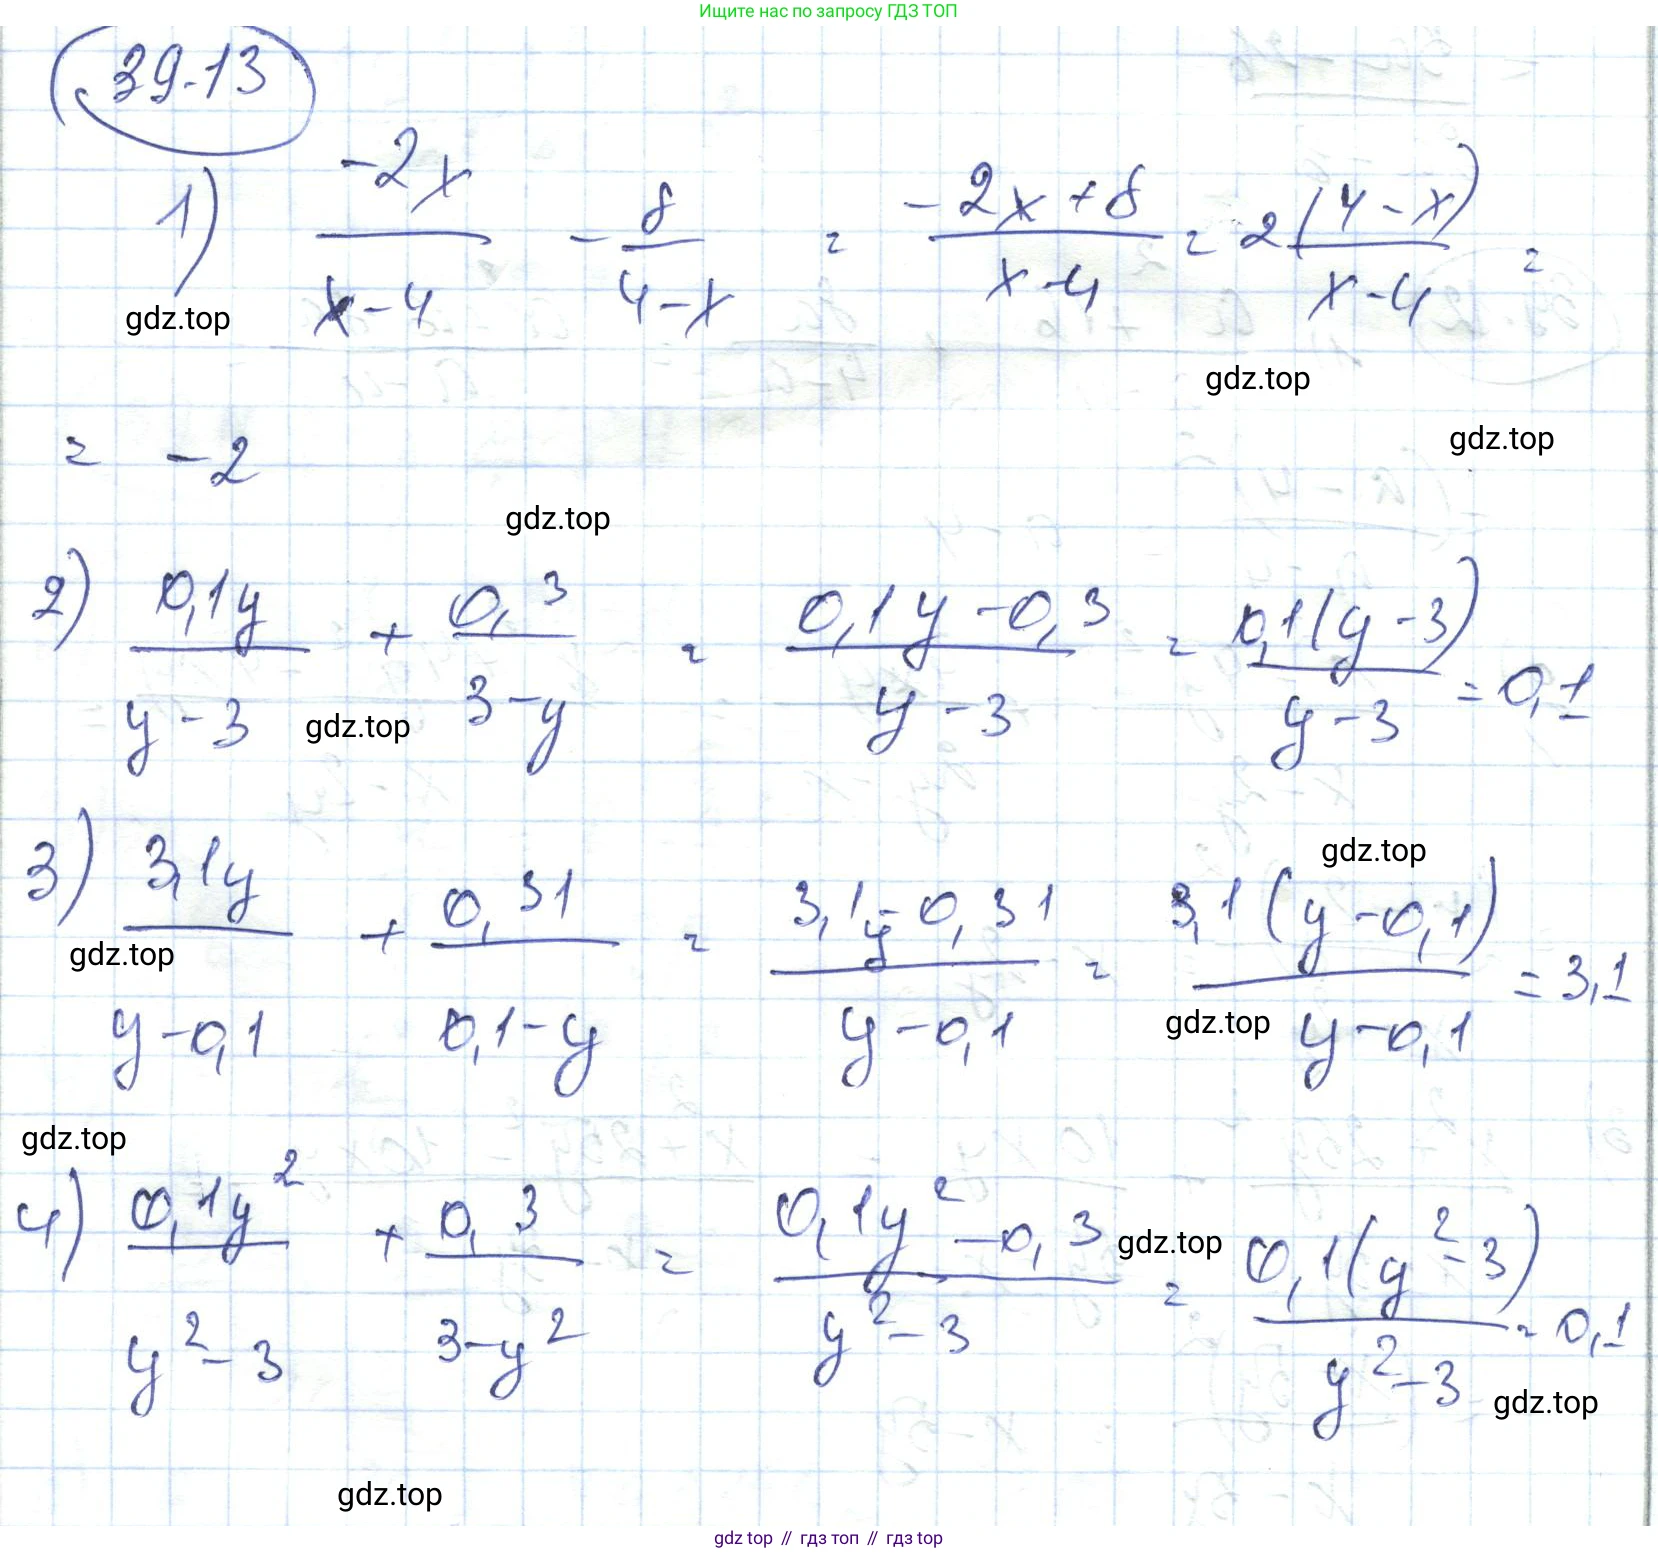 Ищите нас по запросу ГДЗ ТОП
39.13
1) -2x/(x-4) - 8/(4-x) = (-2x+8)/(x-4) = 2(4-x)/(x-4) =
gdz.top
gdz.top
gdz.top
= -2
gdz.top
2) 0,1y/(y-3) + 0,3/(3-y) = (0,1y-0,3)/(y-3) = 0,1(y-3)/(y-3) = 0,1
gdz.top
gdz.top
3) 3,1y/(y-0,1) + 0,31/(0,1-y) = (3,1y-0,31)/(y-0,1) = 3,1(y-0,1)/(y-0,1) = 3,1
gdz.top
gdz.top
gdz.top
4) 0,1y²/(y²-3) + 0,3/(3-y²) = (0,1y²-0,3)/(y²-3) = 0,1(y²-3)/(y²-3) = 0,1
gdz.top
gdz.top
gdz.top
gdz top // гдз топ // гдз top